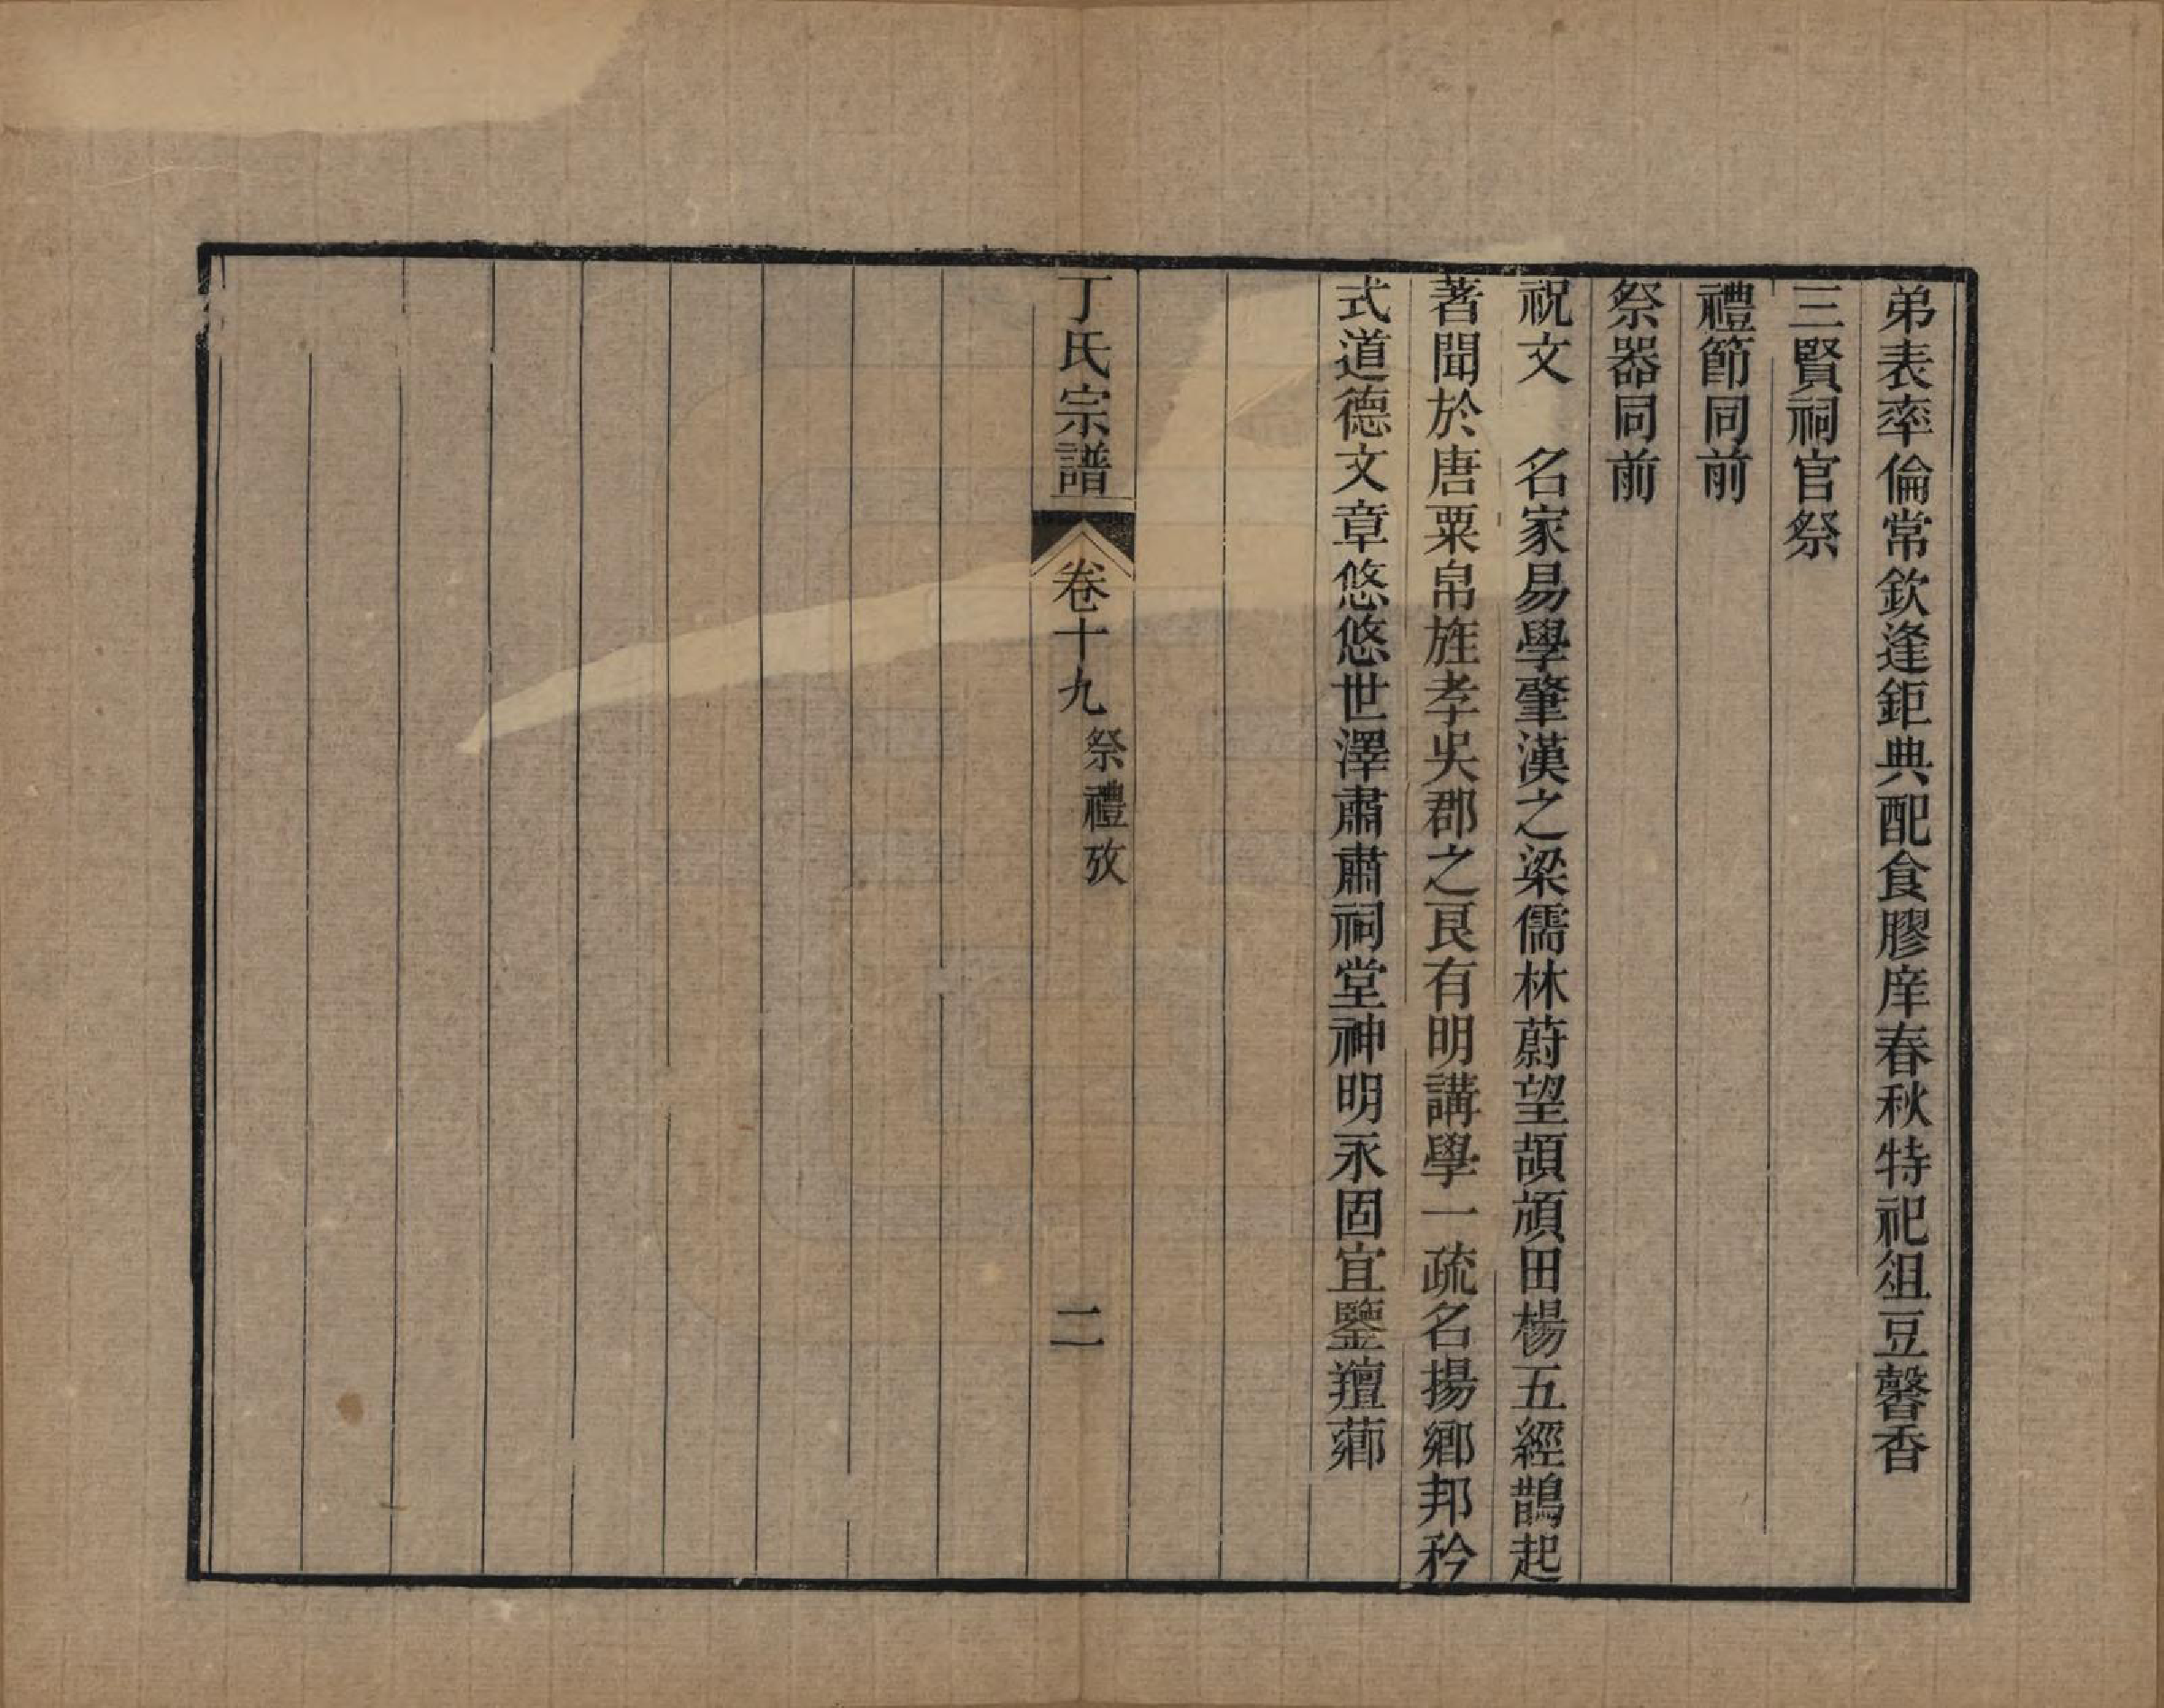 弟表率倫常欽逢鉅典配食膠庠春秋特祀俎豆馨香
三賢祠官祭
禮節同前
祭器同前
祝文　名家易學肇漢之梁儒林蔚望頡頏田楊五經鵲起
著聞於唐粟帛旌孝吳郡之良有明講學一疏名揚鄉邦矜
式道德文章悠悠世澤肅肅祠堂神明永固宜鑒羶薌
丁氏宗譜　卷十九　祭禮攷　二